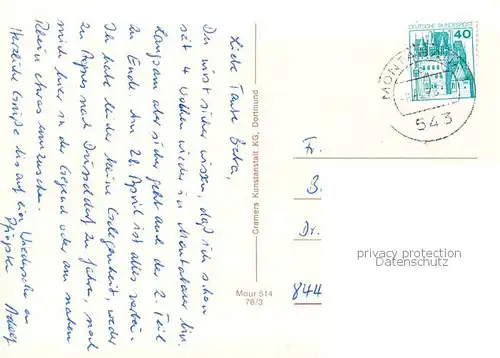 Liebe Tante Berta,
Du wirst sicher wissen, daß ich schon
seit 4 Wochen wieder in Montabaur bin.
Langsam aber sicher geht auch der 2. Teil
zu Ende. Am 28. April ist alles vorbei.
Ich habe leider keine Gelegenheit, weder
zu Agnes nach Düsseldorf zu fahren, noch
mich hier in der Gegend oder am nahen
Rhein etwas umzusehen.
Herzliche Grüße bis auf ein Wiedersehn an
Pfingsten
Cramers Kunstanstalt KG, Dortmund
Mour 514
76/3
DEUTSCHE BUNDESPOST
40
MONTABAUR
543
Fr.
B.
Dr.
844
privacy protection
Datenschutz